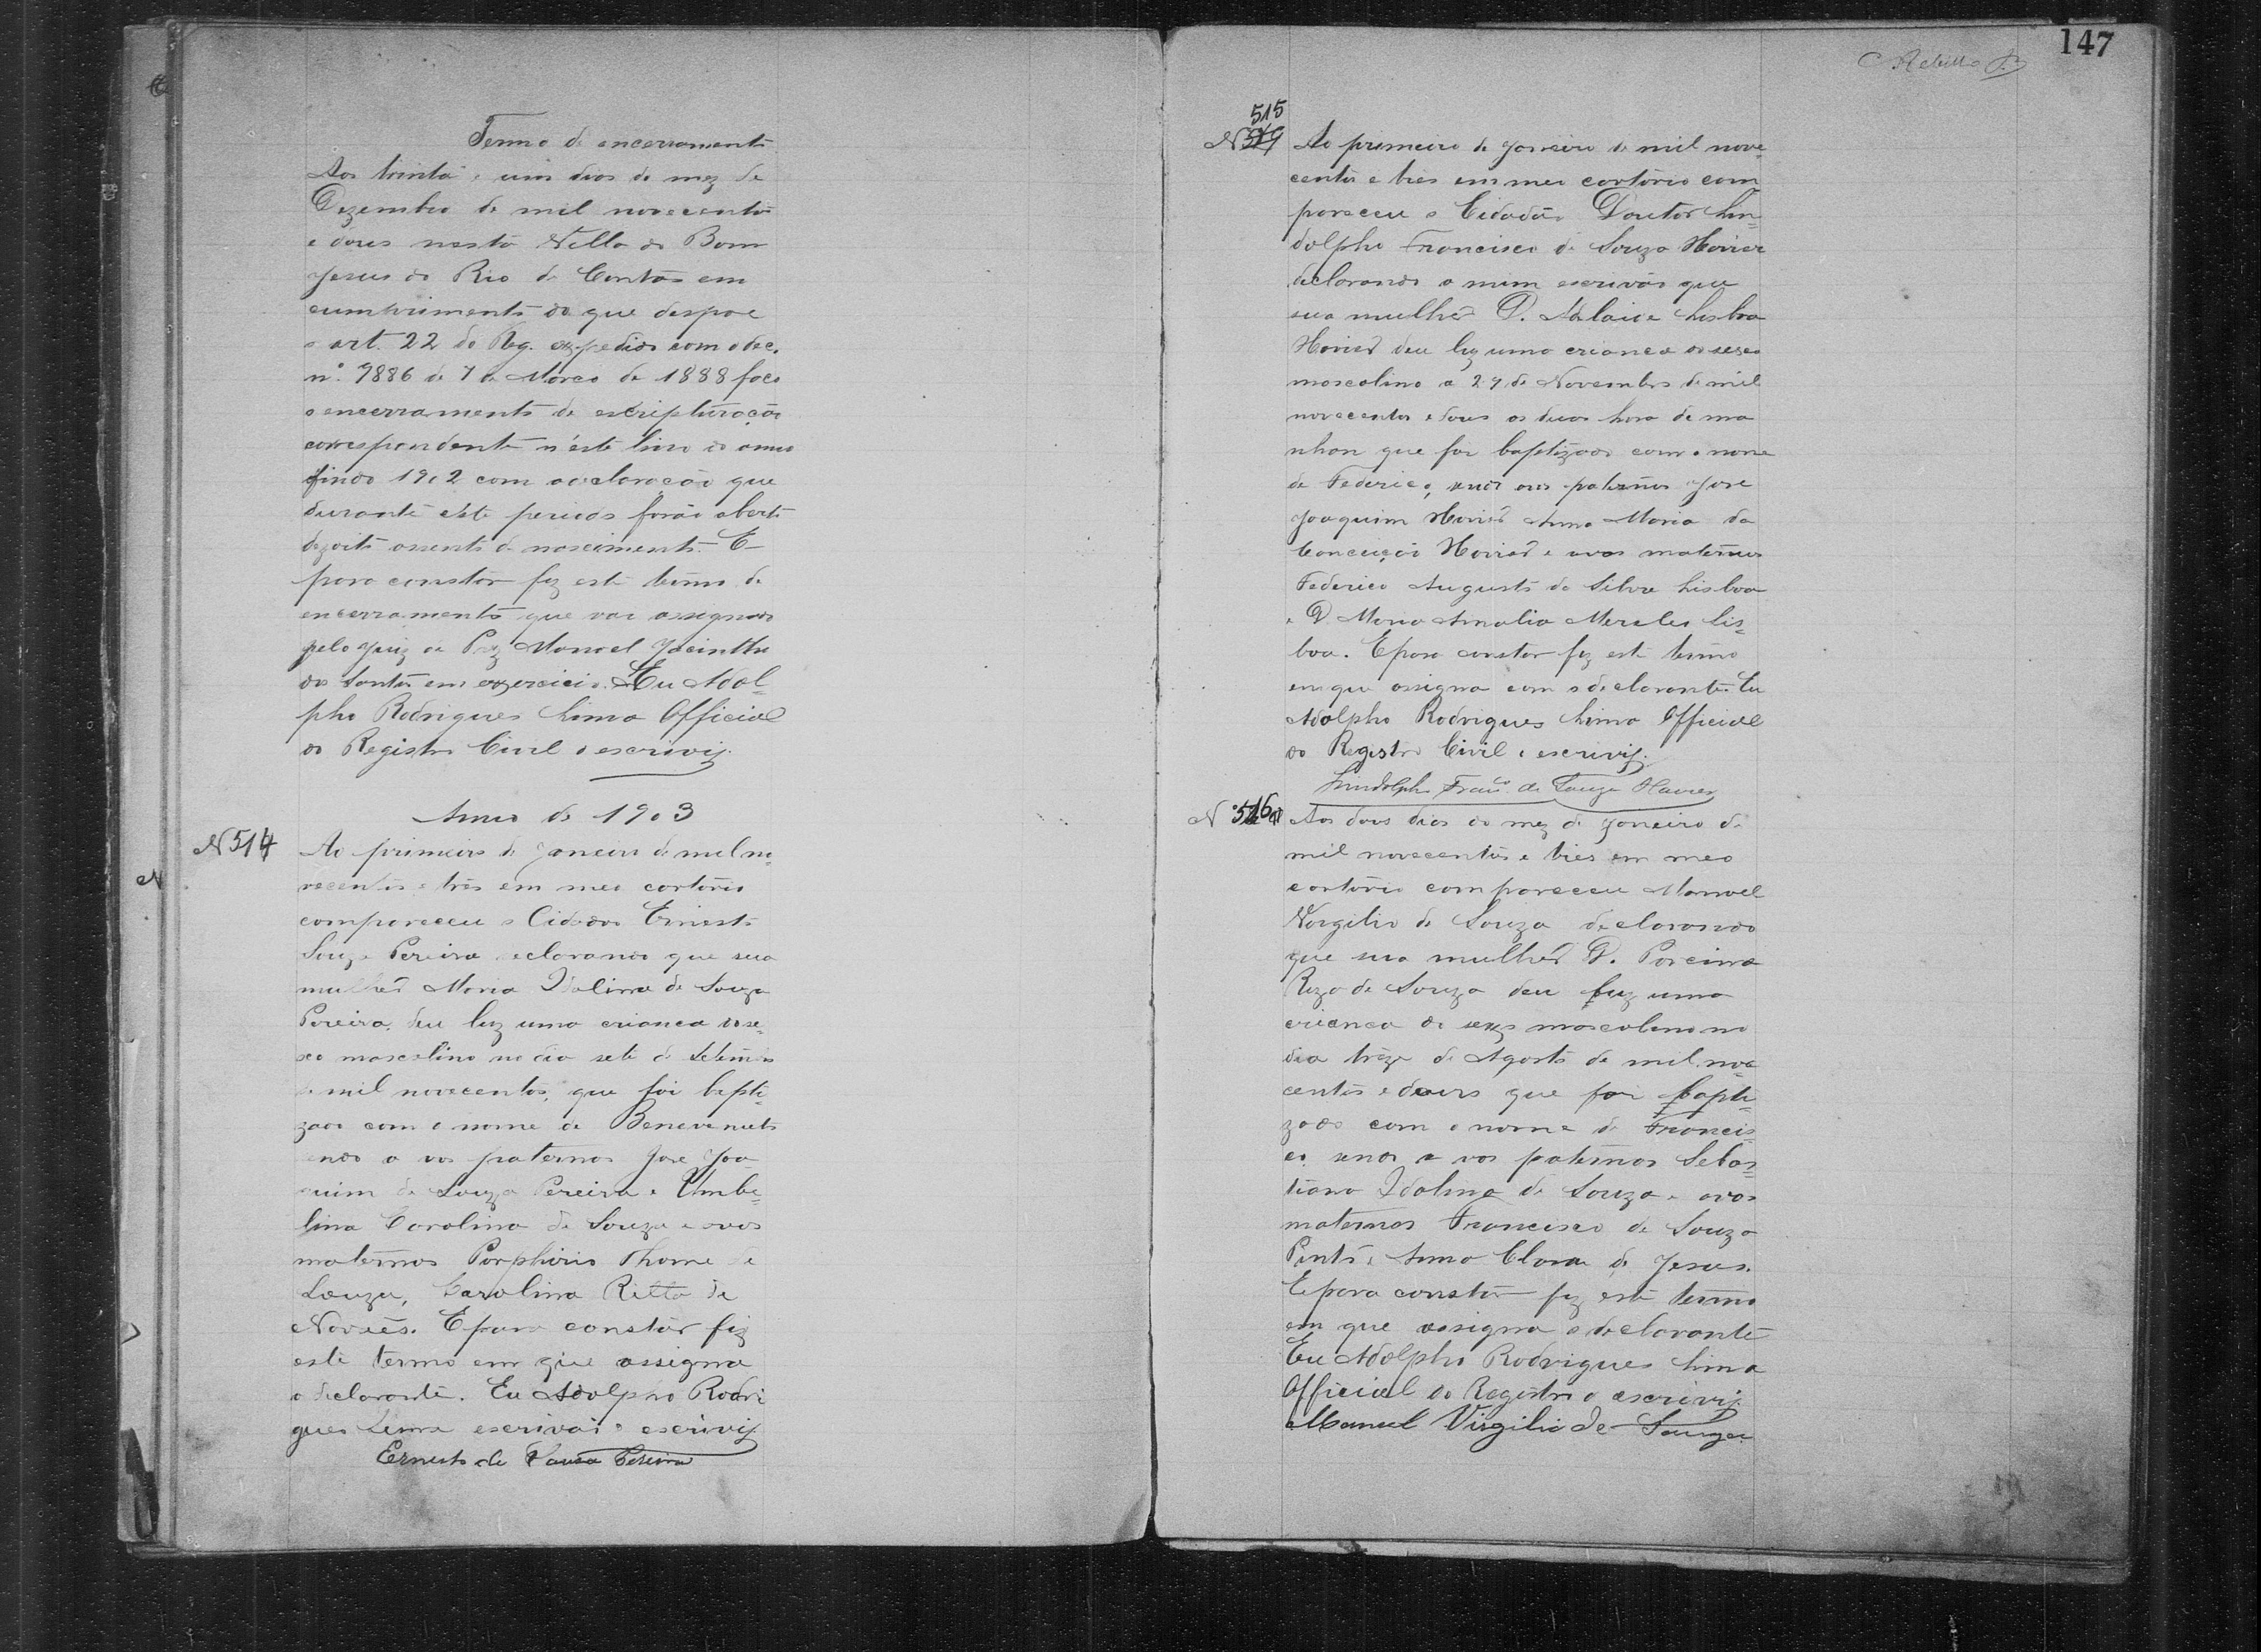 Termo de encerramento
Aos trinta e um dias do mez de
Dezembro de mil novecentos
e dous nesta Villa do Bom
Jesus do Rio de Contas em
cumprimento do que dispoe
o art. 22 do Reg. expedido com o dec.
nº. 9886 de 7 de Março de 1888 faço
o encerramento de escripturação
correspondente n'este livro do anno
findo 1902 com a declaração que
durante este periodo forão aberto
dezoito assento de nascimento. E
para constar fiz este termo de
encerramento que vae assignado
pelo Juiz de Paz Manoel Jacintho
dos Santos em exercicio. Eu Adol-
pho Rodrigues Lima Official
do Registro Civil o escrivij.
Anno de 1903
N 514
Ao primeiro de Janeiro de mil no-
vecentos e três em meo cartorio
compareceu o Cidadão Ernesto
Souza Pereira declarando que sua
mulher Maria Idalina de Souza
Pereira, deu luz uma crianca do se-
xo mascolino no dia sete de Setembro
de mil novecentos, que foi bapti-
zado com o nome de Benevenuto
sendo a vos paternos Jose Joa-
quim de Souza Pereira e Umbe-
lina Carolina de Souza e avos
maternos Porphirio Thome de
Souza, Carolina Ritta de
Novaes. E para constar fiz
este termo em que assigna
o declarante. Eu Adolpho Rodri
gues Lima escrivão o escrivij
Ernesto de Souza Pereira
147
515
N
Ao primeiro de Janeiro de mil nove-
centos e tres em meu cartorio com
pareceu o Cidadão Doutor Lin-
dolpho Francisco de Souza Xavier
declarando a mim escrivão que
sua mulher D. Adelaide Lisboa
Xavier deu luz uma crianca do sexo
mascolino a 29 de Novembro de mil
novecentos e dous as duas hora da ma
nhan que foi baptizado com o nome
de Federico, sendo avos paternos Jose
Joaquim Xavier Anna Maria da
Conceição Xavier e avos maternos
Federico Augusto da Silva Lisboa
e D Maria Amalia Mereles Lis-
boa. E para constar fiz este termo
em que assigna com o declarante. Eu
Adolpho Rodrigues Lima Official
do Registro Civil o escrivij.
Lindolpho Franco. de Souza Xavier
N 516
Aos dous dias do mez de Janeiro de
mil novecentos e tres em meo
cartorio compareceu Manoel
Virgilio de Souza declarando
que sua mulher D. Porcina
Roza de Souza deu luz uma
crianca do sexo mascolino no
dia treze de Agosto de mil nove
centos e dous que foi bapti-
zado com o nome de Francis-
co, sendo a vos paternos Sebas-
tiana Idalina de Souza e avos
maternos Francisco de Souza
Pinto e Anna Clara de Jesus.
E para constar fiz este termo
em que assigna o declarante
Eu Adolpho Rodrigues Lima
Official do Registro o escrivij.
Manuel Virgilio de Souza